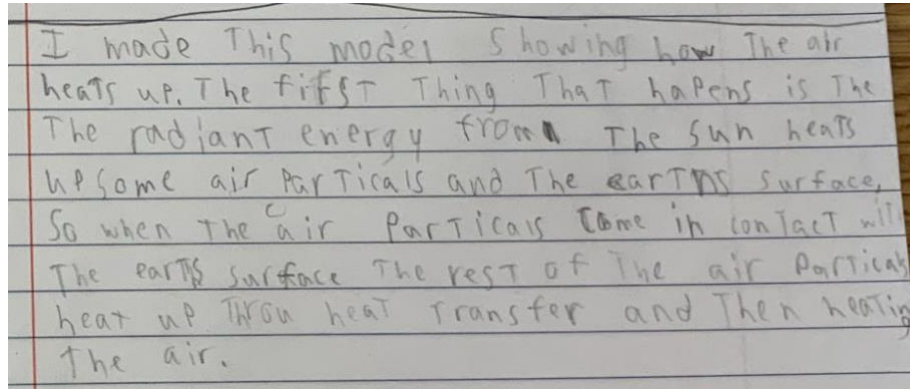 I made This model Showing how The air
heats up. The fifst Thing That hapens is The
The radiant energy from The sun heats
up some air ParTicals and The earths surface,
So when The air ParTicals Come in conTact with
The earths surface The rest of The air ParTicals
heat up Throu heat Transfer and Then heating
The air.